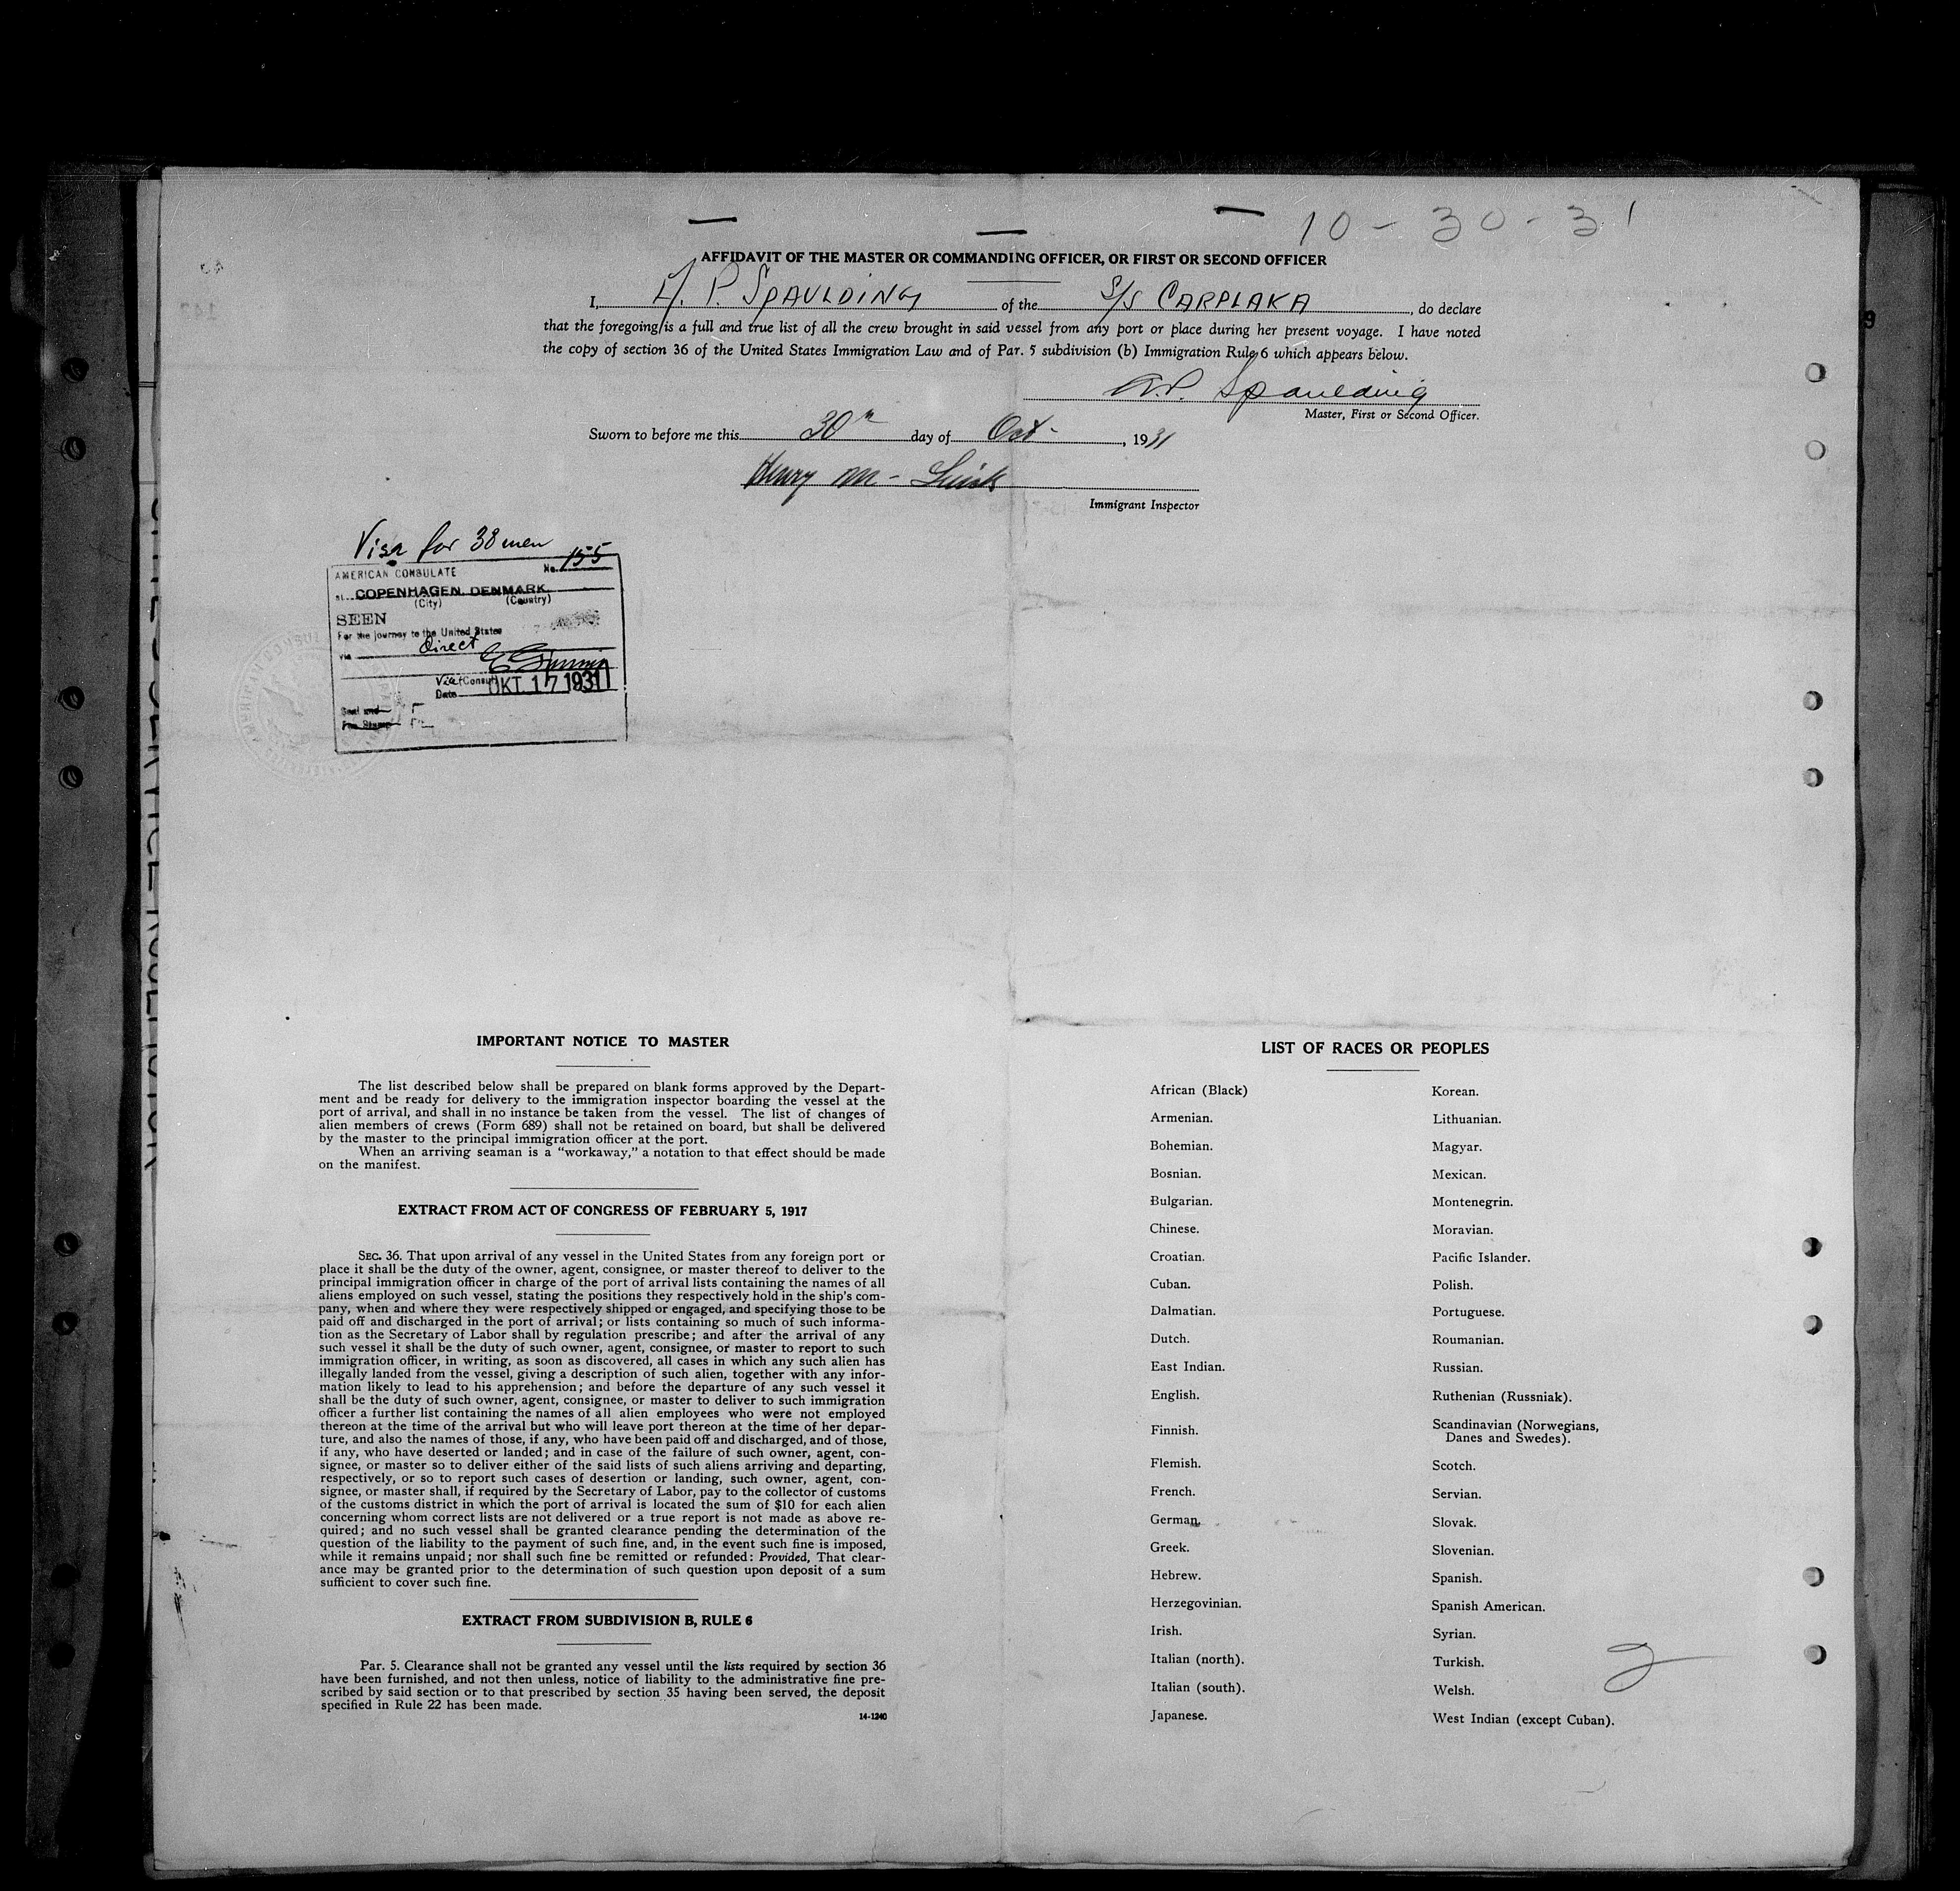 10-30-31
AFFIDAVIT OF THE MASTER OR COMMANDING OFFICER, OR FIRST OR SECOND OFFICER
I, A. P. SPAULDING of the S/S CARPLAKA, do declare
that the foregoing is a full and true list of all the crew brought in said vessel from any port or place during her present voyage. I have noted
the copy of section 36 of the United States Immigration Law and of Par. 5 subdivision (b) Immigration Rule 6 which appears below.
A.P. Spaulding
Master, First or Second Officer.
Sworn to before me this 30th day of Oct-, 1931
Henry M-
Immigrant Inspector
Visa for 38 men
AMERICAN CONSULATE No. 155
at COPENHAGEN, DENMARK
(City) (Country)
SEEN
For the journey to the United States
via Direct
Vice Consul
Date OKT 17 1931
Seal and
Fee Stamp
IMPORTANT NOTICE TO MASTER
The list described below shall be prepared on blank forms approved by the Depart-
ment and be ready for delivery to the immigration inspector boarding the vessel at the
port of arrival, and shall in no instance be taken from the vessel. The list of changes of
alien members of crews (Form 689) shall not be retained on board, but shall be delivered
by the master to the principal immigration officer at the port.
When an arriving seaman is a "workaway," a notation to that effect should be made
on the manifest.
EXTRACT FROM ACT OF CONGRESS OF FEBRUARY 5, 1917
SEC. 36. That upon arrival of any vessel in the United States from any foreign port or
place it shall be the duty of the owner, agent, consignee, or master thereof to deliver to the
principal immigration officer in charge of the port of arrival lists containing the names of all
aliens employed on such vessel, stating the positions they respectively hold in the ship's com-
pany, when and where they were respectively shipped or engaged, and specifying those to be
paid off and discharged in the port of arrival; or lists containing so much of such informa-
tion as the Secretary of Labor shall by regulation prescribe; and after the arrival of any
such vessel it shall be the duty of such owner, agent, consignee, or master to report to such
immigration officer, in writing, as soon as discovered, all cases in which any such alien has
illegally landed from the vessel, giving a description of such alien, together with any infor-
mation likely to lead to his apprehension; and before the departure of any such vessel it
shall be the duty of such owner, agent, consignee, or master to deliver to such immigration
officer a further list containing the names of all alien employees who were not employed
thereon at the time of the arrival but who will leave port thereon at the time of her depar-
ture, and also the names of those, if any, who have been paid off and discharged, and of those,
if any, who have deserted or landed; and in case of the failure of such owner, agent, con-
signee, or master so to deliver either of the said lists of such aliens arriving and departing,
respectively, or so to report such cases of desertion or landing, such owner, agent, con-
signee, or master shall, if required by the Secretary of Labor, pay to the collector of customs
of the customs district in which the port of arrival is located the sum of $10 for each alien
concerning whom correct lists are not delivered or a true report is not made as above re-
quired; and no such vessel shall be granted clearance pending the determination of the
question of the liability to the payment of such fine, and, in the event such fine is imposed,
while it remains unpaid; nor shall such fine be remitted or refunded: Provided, That clear-
ance may be granted prior to the determination of such question upon deposit of a sum
sufficient to cover such fine.
EXTRACT FROM SUBDIVISION B, RULE 6
Par. 5. Clearance shall not be granted any vessel until the lists required by section 36
have been furnished, and not then unless, notice of liability to the administrative fine pre-
scribed by said section or to that prescribed by section 35 having been served, the deposit
specified in Rule 22 has been made.
14-1240
LIST OF RACES OR PEOPLES
African (Black)
Armenian.
Bohemian.
Bosnian.
Bulgarian.
Chinese.
Croatian.
Cuban.
Dalmatian.
Dutch.
East Indian.
English.
Finnish.
Flemish.
French.
German.
Greek.
Hebrew.
Herzegovinian.
Irish.
Italian (north).
Italian (south).
Japanese.
Korean.
Lithuanian.
Magyar.
Mexican.
Montenegrin.
Moravian.
Pacific Islander.
Polish.
Portuguese.
Roumanian.
Russian.
Ruthenian (Russniak).
Scandinavian (Norwegians,
Danes and Swedes).
Scotch.
Servian.
Slovak.
Slovenian.
Spanish.
Spanish American.
Syrian.
Turkish.
Welsh.
West Indian (except Cuban).
2